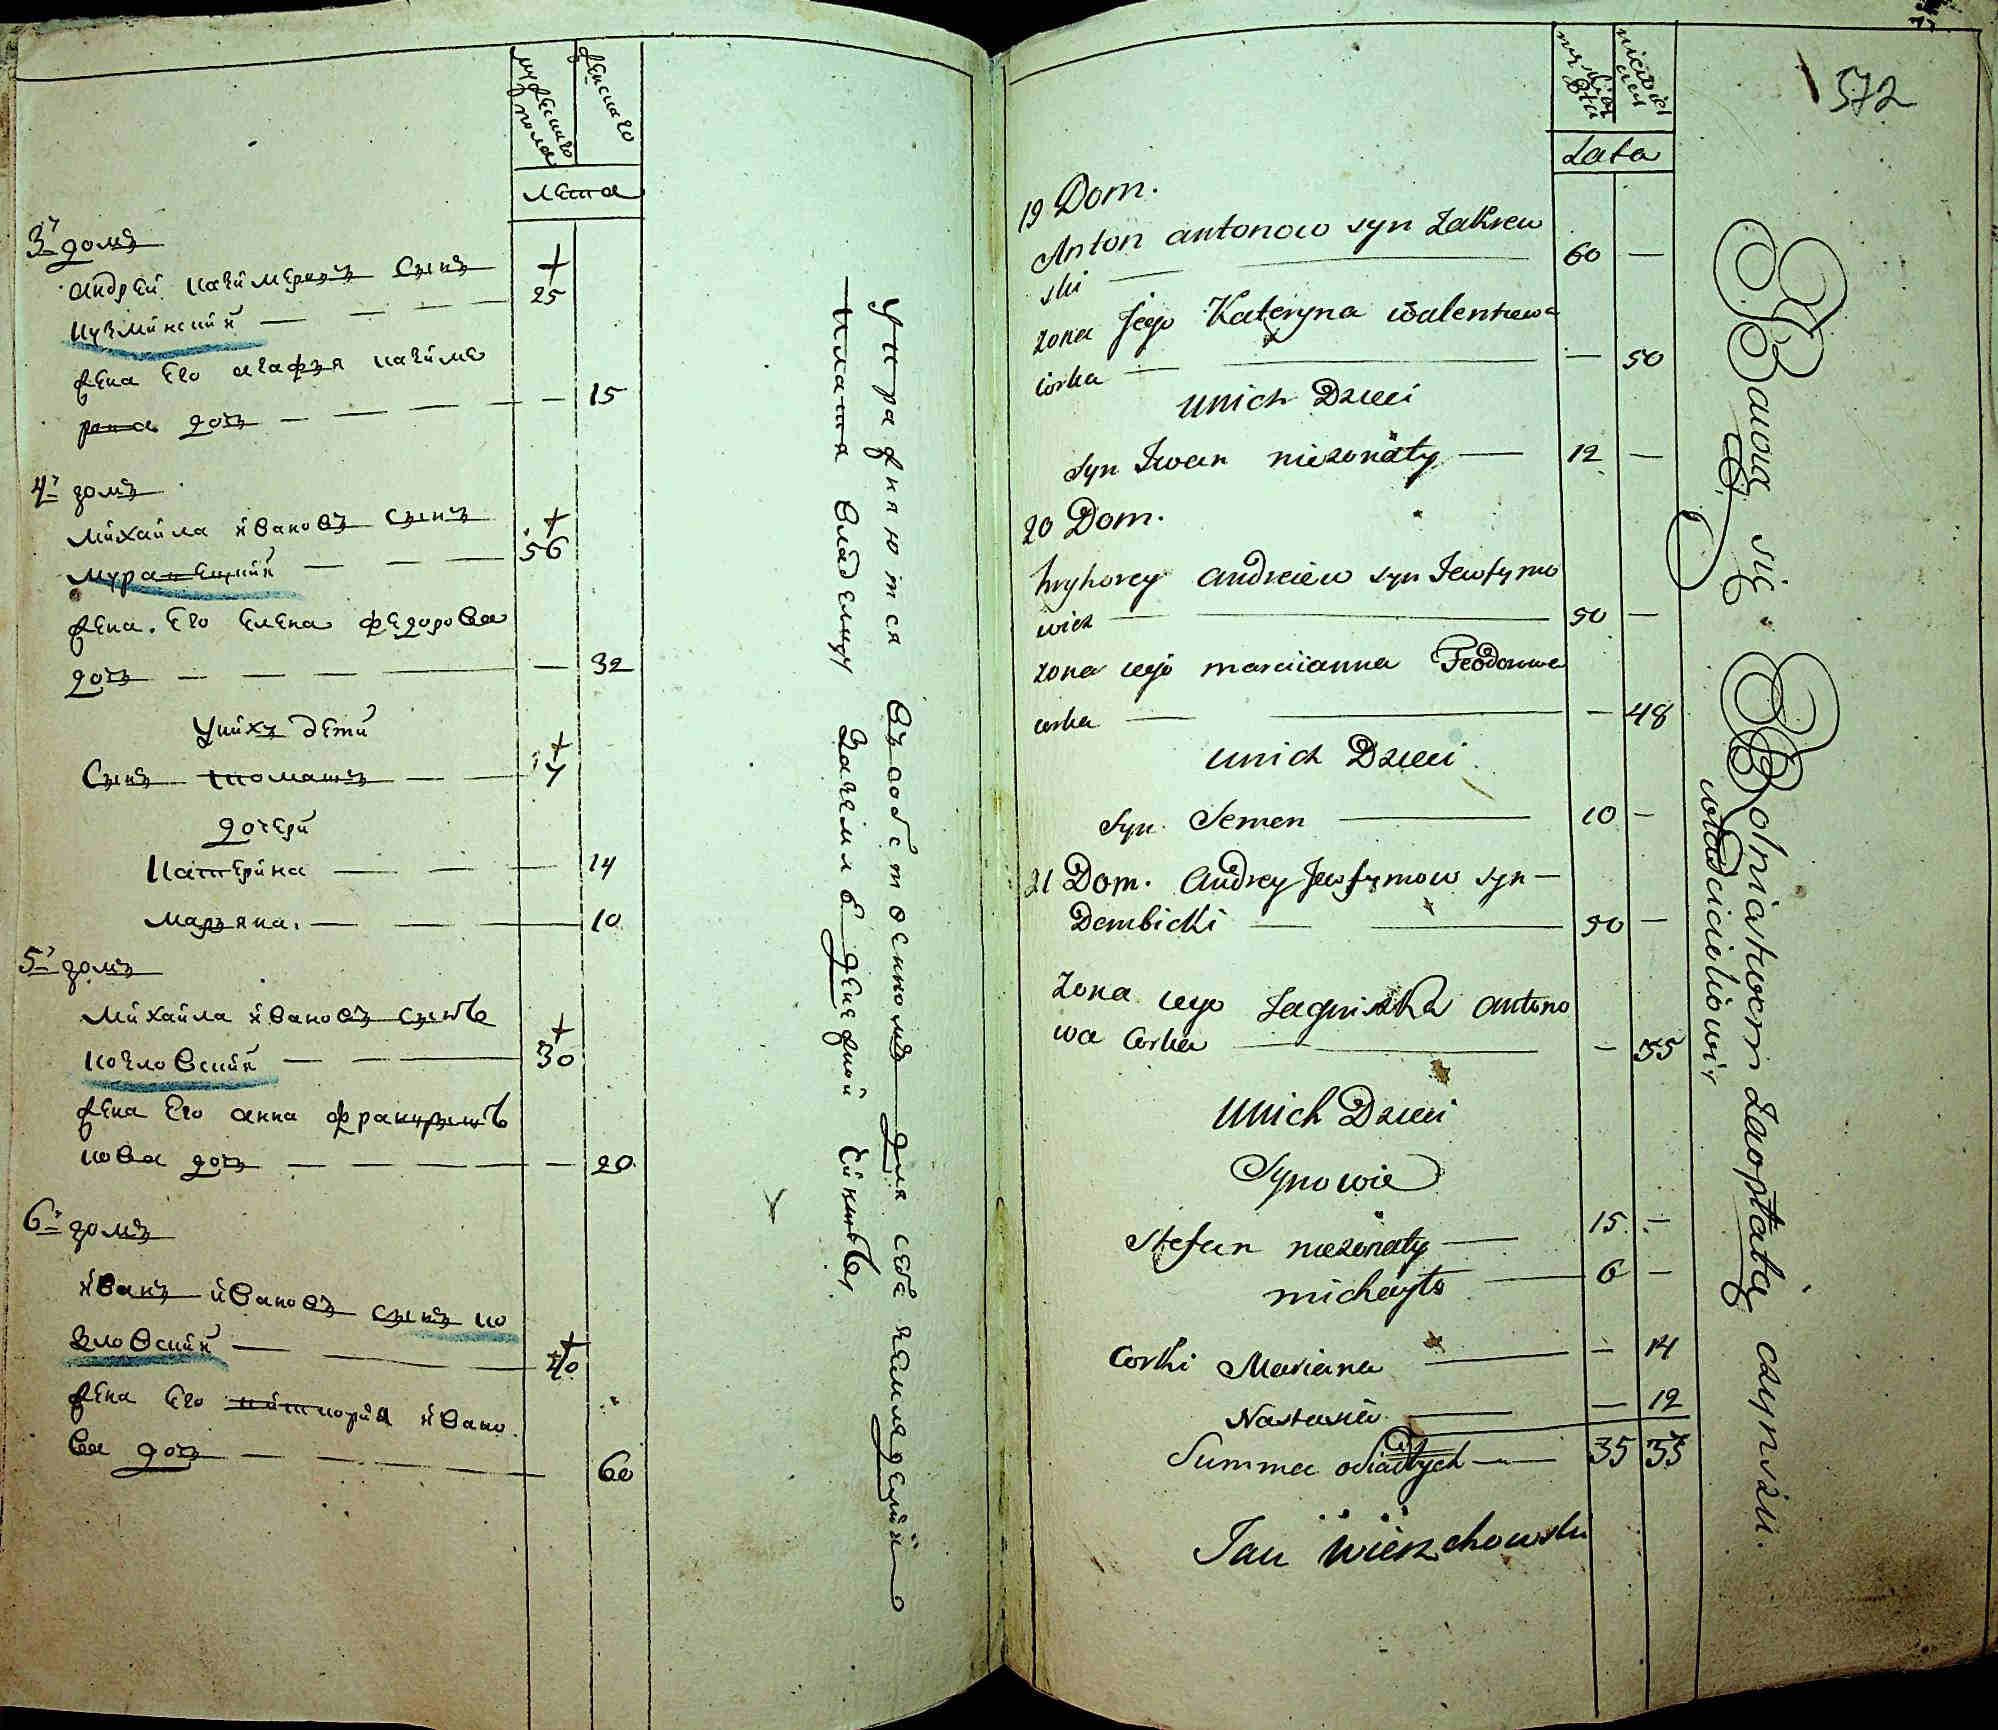 мужеска пола
женска го
лета
3й домъ
андрей казимеровъ сынъ
кузминский
25
жена его агафия казиме
рова дочь
15
4й домъ
михайла ивановъ сынъ
56
жена его елена федорова
дочь
32
у нихъ дети
сынъ томашъ
17
дочери
катерина
14
марьяна
10
5й домъ
михайла ивановъ сынъ
козловский
30
жена его анна
кова дочь
20
6й домъ
иванъ ивановъ сынъ ко
зловский
40
жена его виктория ивано
ва дочь
60
упражняются въ собственномъ для себя земледелии
платя владельцу за землю денежной чиншъ
572
Lata
19 Dom.
Anton antonow syn Zakrew
ski 60 —
zona jego Kateryna walentiewa
corka — 50
unich Dzieci
syn Iwan niezonaty 12 —
20 Dom.
hryhorey andreiew syn Jewfymo
wicz 50 —
zona iego marcianna Feodorowa
corka — 48
unich Dzieci
syn Semen 10 —
21 Dom. Andrey Jewfymow syn
Dembicki 50 —
Zona iego Jagniszka antono
wa Corka — 35
Unich Dzieci
Synowie
Stefan niezonaty 15 —
michayło 6 —
Corki Mariana — 14
Nastasia — 12
Summa osiadłych 35 33
Jan Wierzchowski
Bawią się Rolnictwem Zaopłatą czynszu
właścicielowi